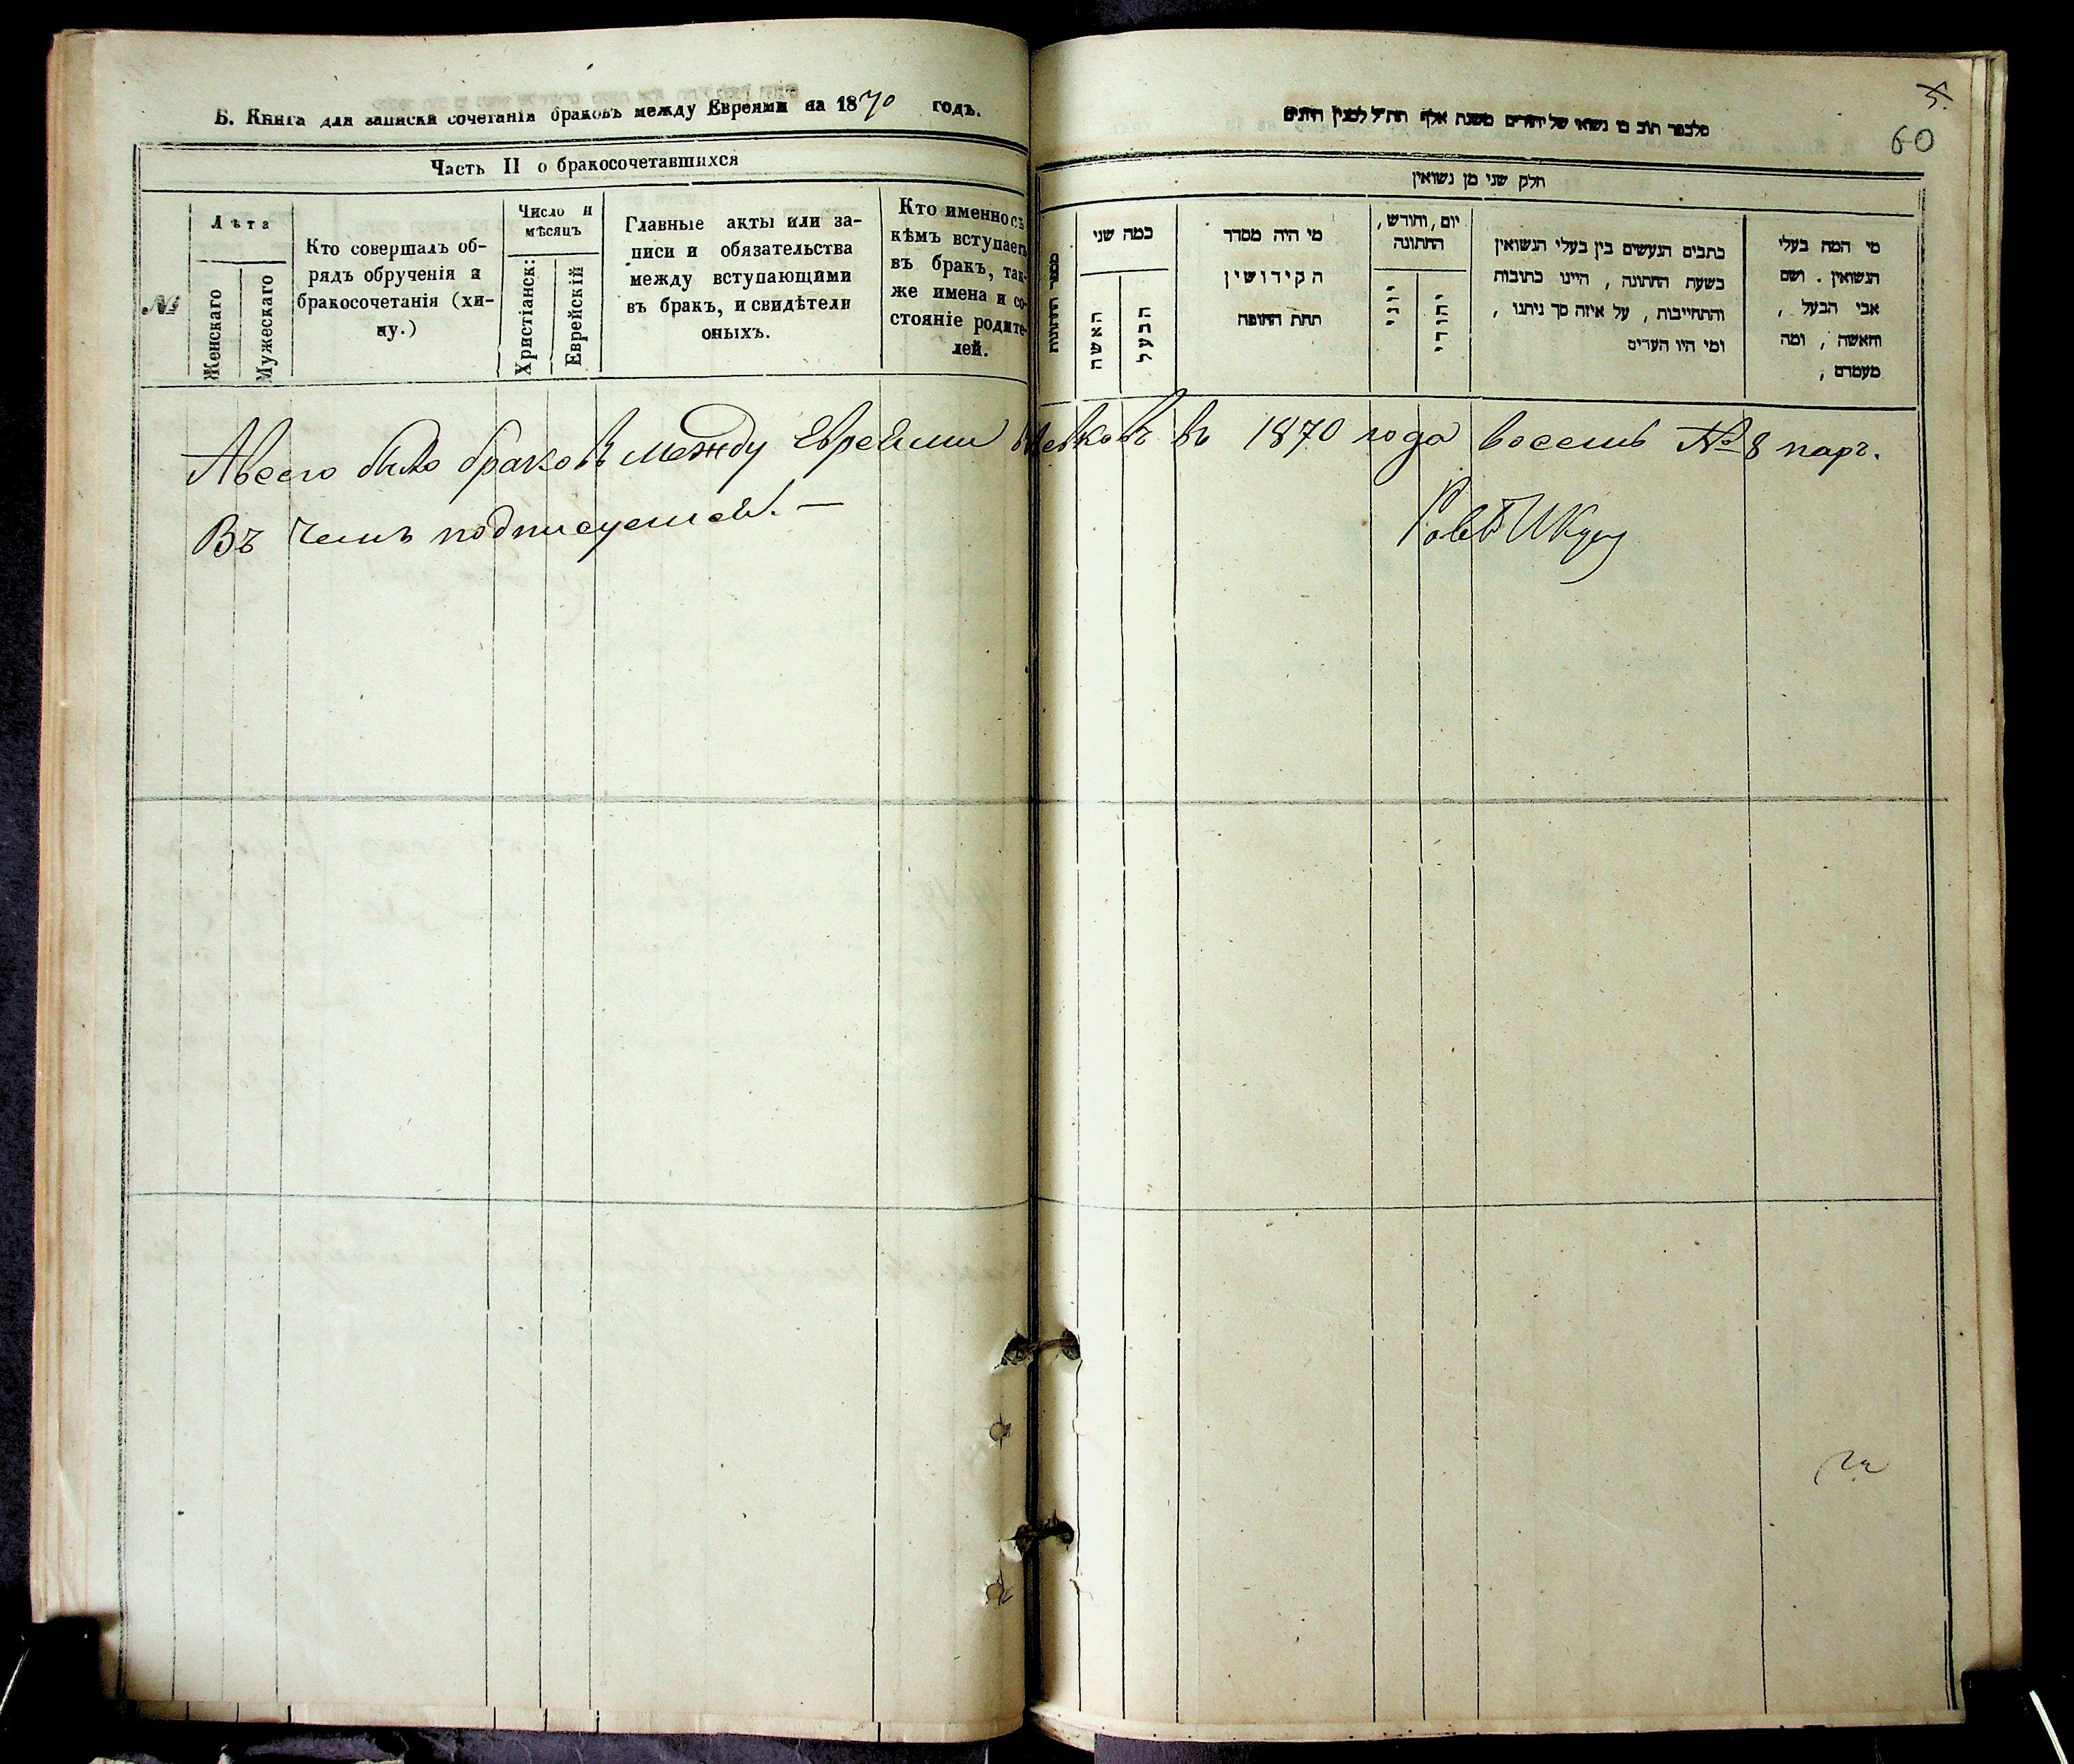 Б. Книга для записки сочетанія браковъ между Евреями на 1870 годъ.
Часть II о бракосочетавшихся
№
Лѣта
Женскаго
Мужескаго
Кто совершалъ об-
рядъ обрученія и
бракосочетанія (хи-
ну.)
Число и
мѣсяцъ
Христіанск:
Еврейскій
Главные акты или за-
писи и обязательства
между вступающими
въ бракъ, и свидѣтели
оныхъ.
Кто именно съ
кѣмъ вступаетъ
въ бракъ, так-
же имена и со-
стояніе родите-
лей.
5.
60
חלק שני מן נשואין
מספר החתונות
כמה שני
האשה
הבעל
מי היה מסדר
הקידושין
תחת החופה
יום, וחודש,
החתונה
יוני
יהודי
כתבים הנעשים בין בעלי הנשואין
בשעת החתונה, היינו כתובות
והתחייבות, על איזה סך ניתנו,
ומי היו העדים
מי המה בעלי
הנשואין. ושם
אבי הבעל,
והאשה, ומה
מעמדם,
Авсего было браковъ между Евреями въ 1870 года восемь № 8 паръ.
Въ чемъ подписуемся. —